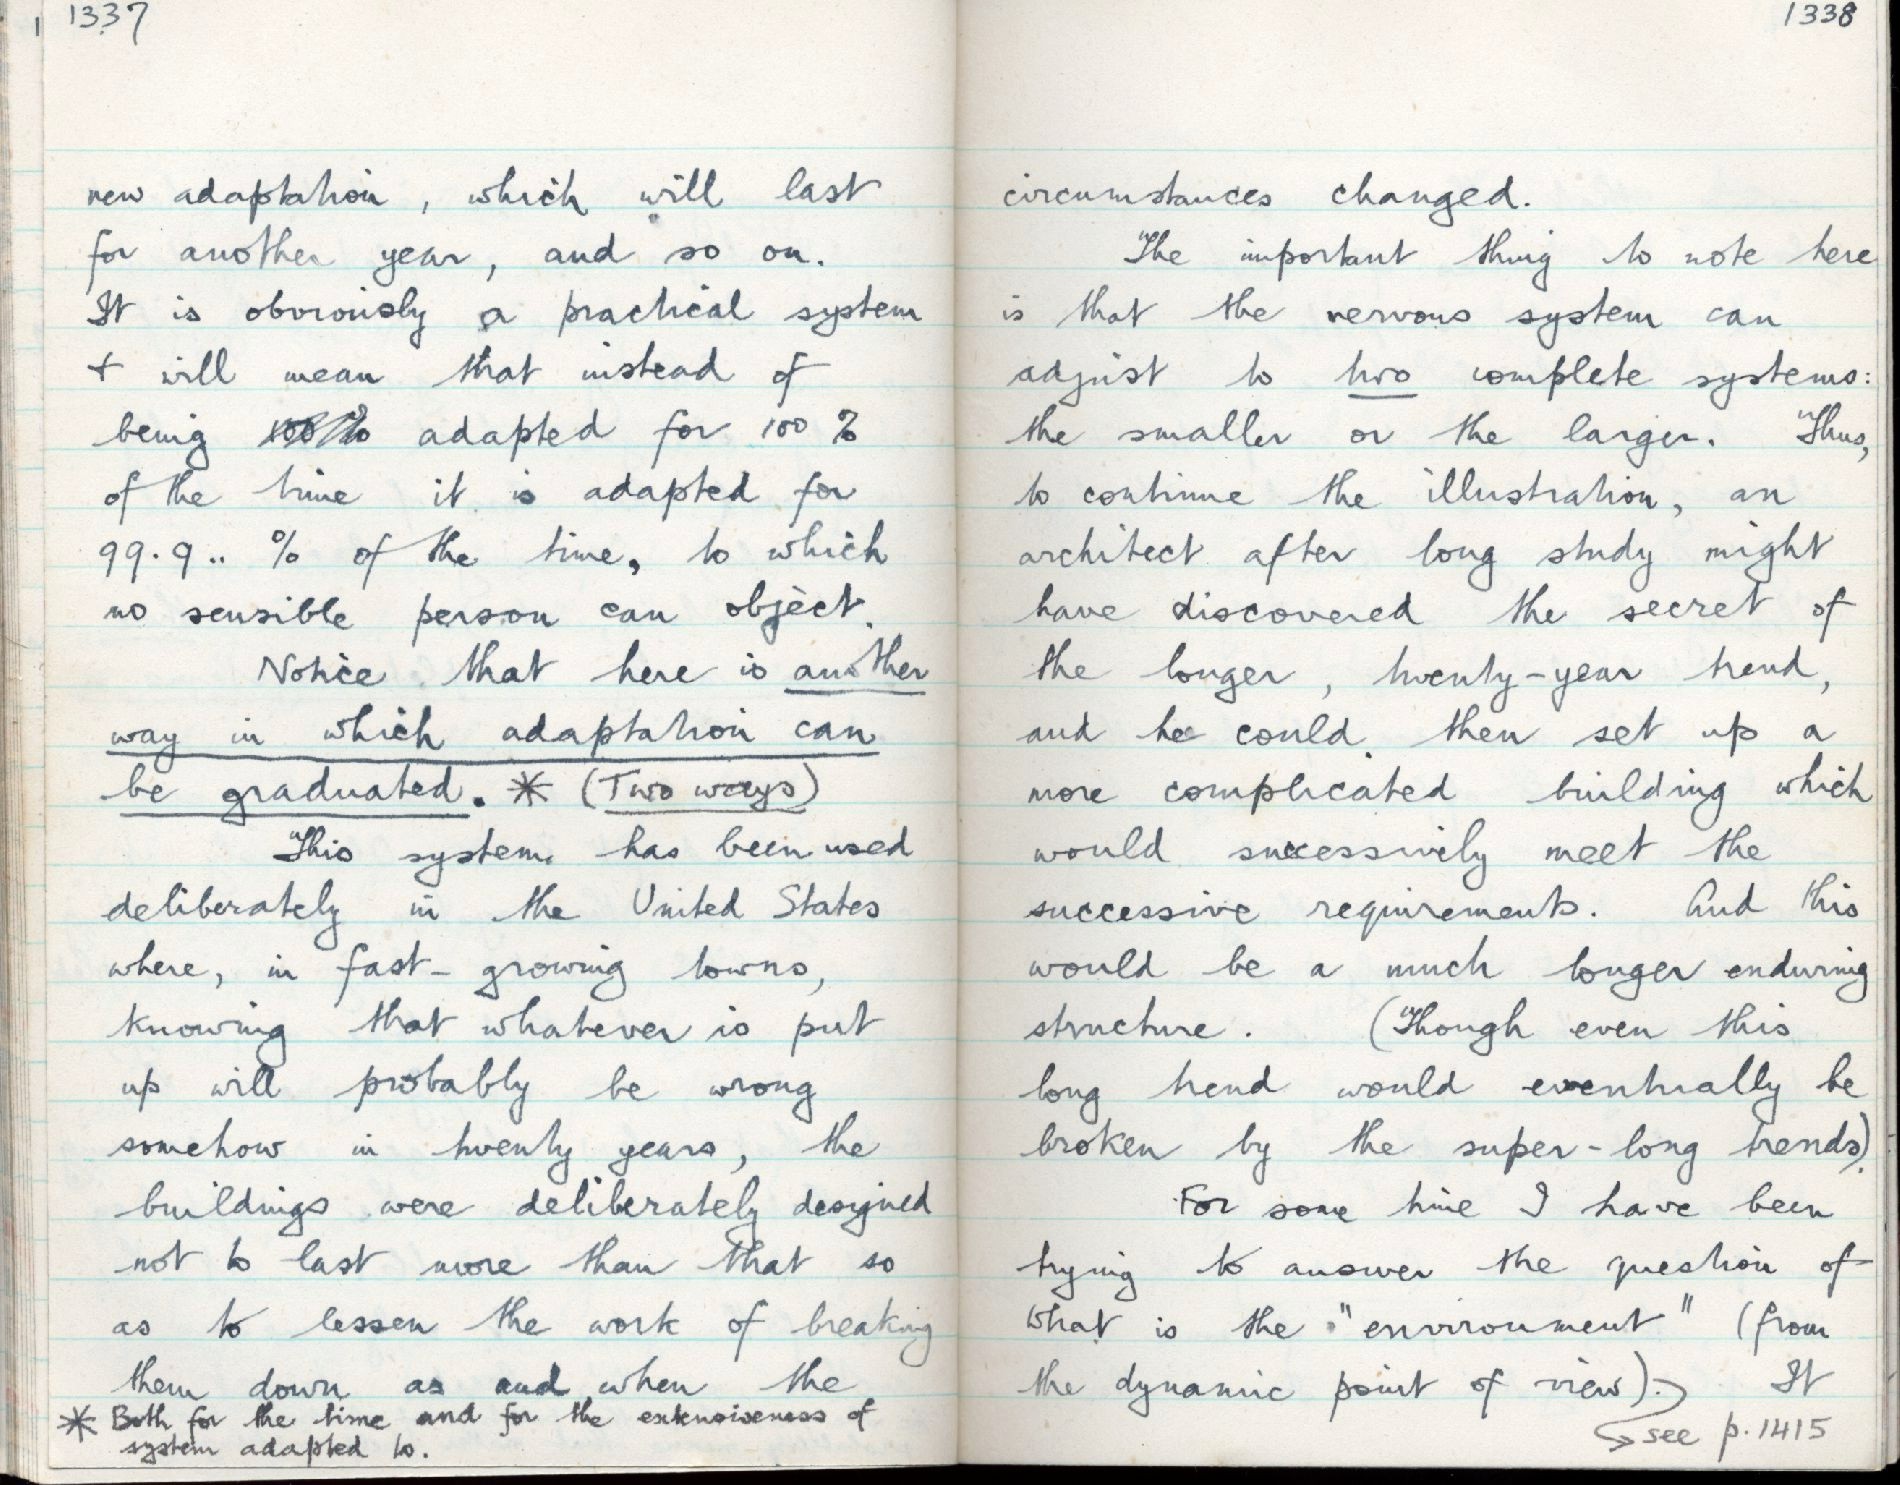 1337
new adaptation, which will last
for another year, and so on.
It is obviously a practical system
+ will mean that instead of
being 100% adapted for 100%
of the time it is adapted for
99.9.. % of the time, to which
no sensible person can object.
Notice that here is another
way in which adaptation can
be graduated. * (Two ways)
This system has been used
deliberately in the United States
where, in fast-growing towns,
knowing that whatever is put
up will probably be wrong
somehow in twenty years, the
buildings were deliberately designed
not to last more than that so
as to lessen the work of breaking
them down as and when the
* Both for the time and for the extensiveness of
system adapted to.
1338
circumstances changed.
The important thing to note here
is that the nervous system can
adjust to two complete systems:
the smaller or the larger. Thus,
to continue the illustration, an
architect after long study might
have discovered the secret of
the longer, twenty-year trend,
and he could then set up a
more complicated building which
would successively meet the
successive requirements. And this
would be a much longer enduring
structure. (Though even this
long trend would eventually be
broken by the super-long trends).
For some time I have been
trying to answer the question of
what is the "environment" (from
the dynamic point of view). It
see p. 1415